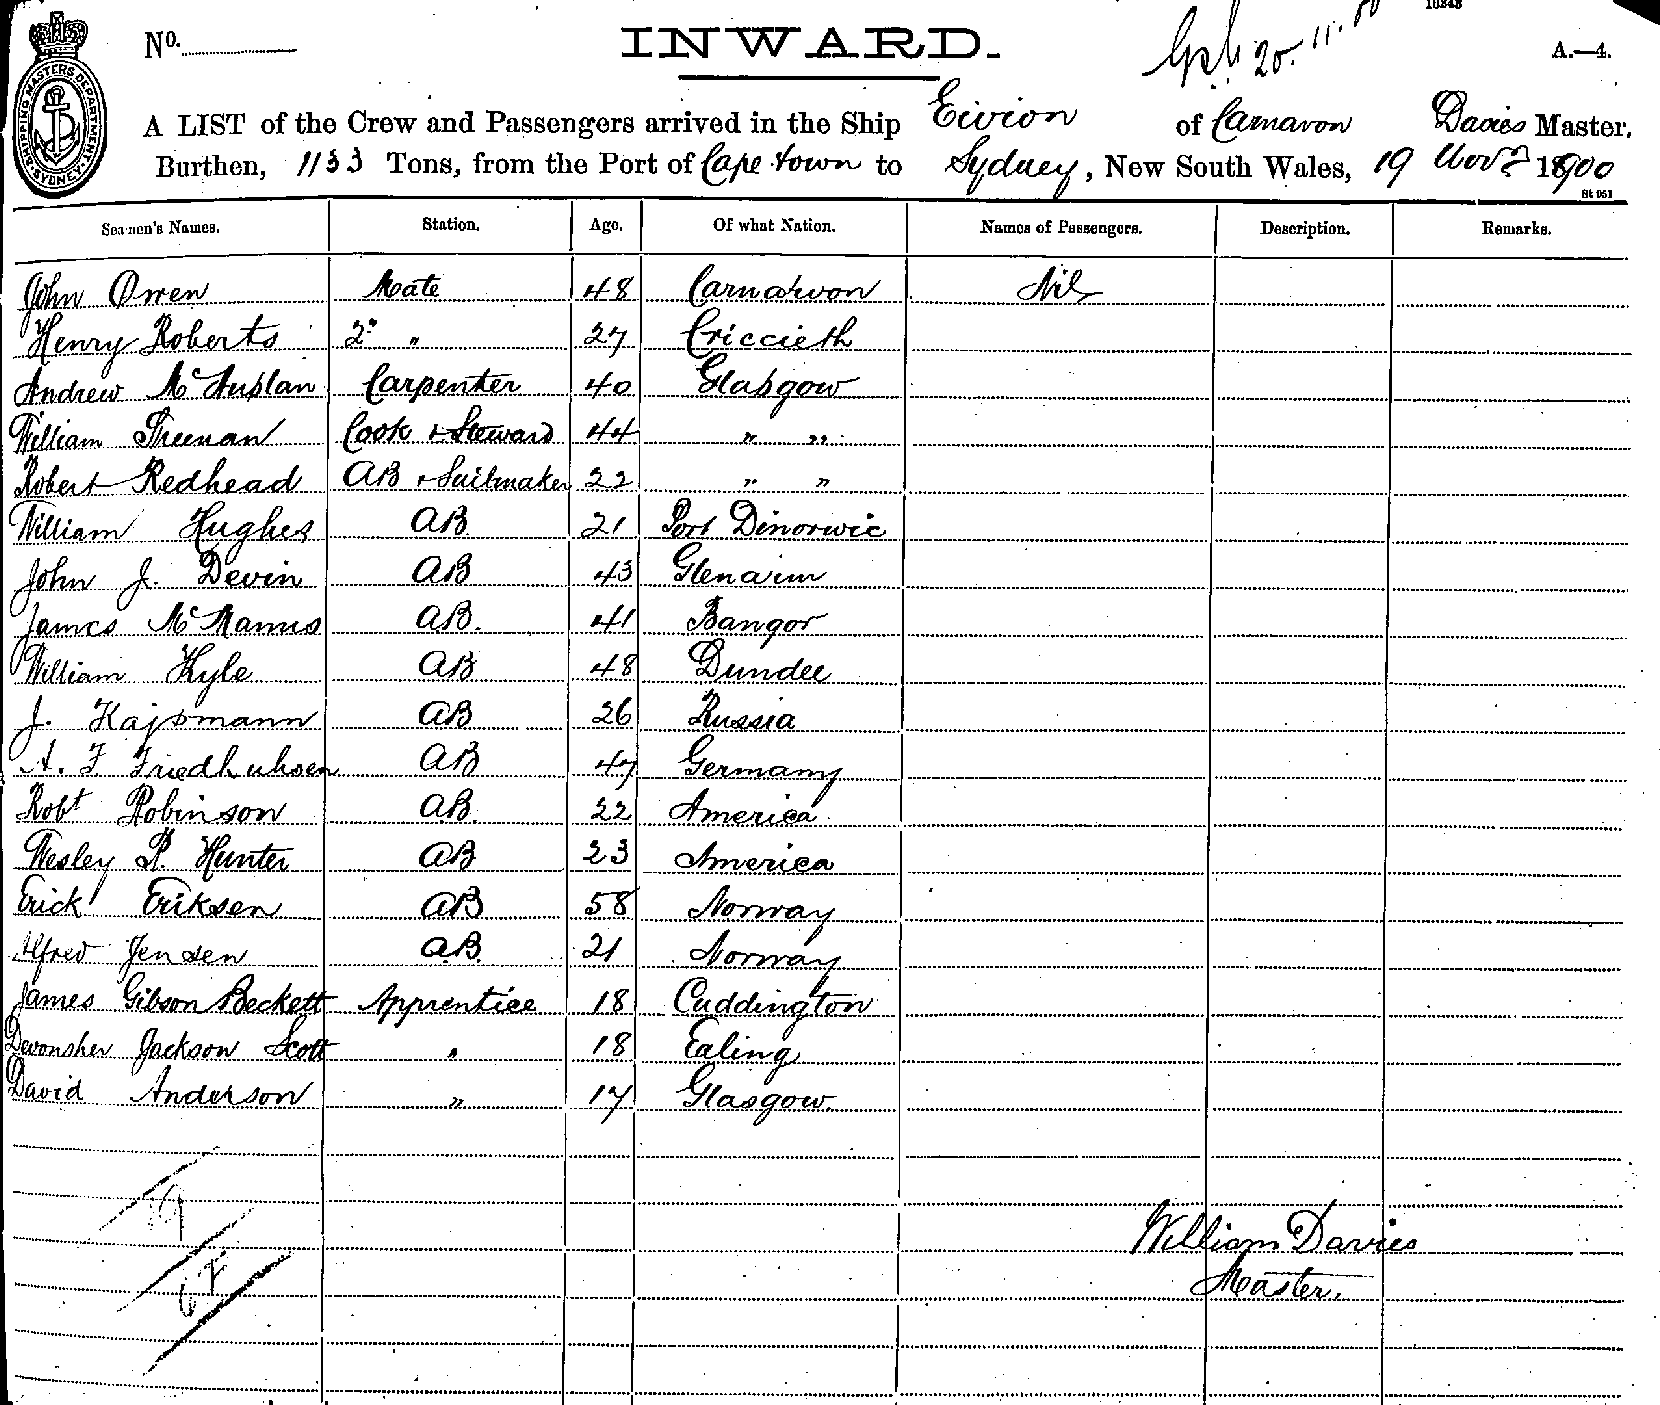 10848
No.
INWARD.
20.11.00
A.—4.
SHIPPING MASTERS DEPARTMENT SYDNEY
A LIST of the Crew and Passengers arrived in the Ship Eivion of Carnavon Davies Master,
Burthen, 1133 Tons, from the Port of Cape town to Sydney, New South Wales, 19 Novr 1900
St 951
Seamen's Names. Station. Age. Of what Nation. Names of Passengers. Description. Remarks.
John Owen Mate 48 Carnarvon Nil
Henry Roberts 2" " 27 Criccieth
Andrew McAuslan Carpenter 40 Glasgow
William Freenan Cook & Steward 44 " "
Robert Redhead AB & Sailmaker 22 " "
William Hughes AB 21 Port Dinorwic
John J. Devin AB 43 Glenarm
James McManus AB. 41 Bangor
William Kyle AB 48 Dundee
J. Kajsmann AB 26 Russia
A. F Friedhuhsen AB 47 Germany
Robt Robinson AB. 22 America
Wesley P. Hunter AB 23 America
Erick Eriksen AB 58 Norway
Alfred Jensen AB. 21 Norway
James Gibson Beckett Apprentice 18 Cuddington
Devonsher Jackson Scott " 18 Ealing
David Anderson " 17 Glasgow.
19
William Davies
Master.